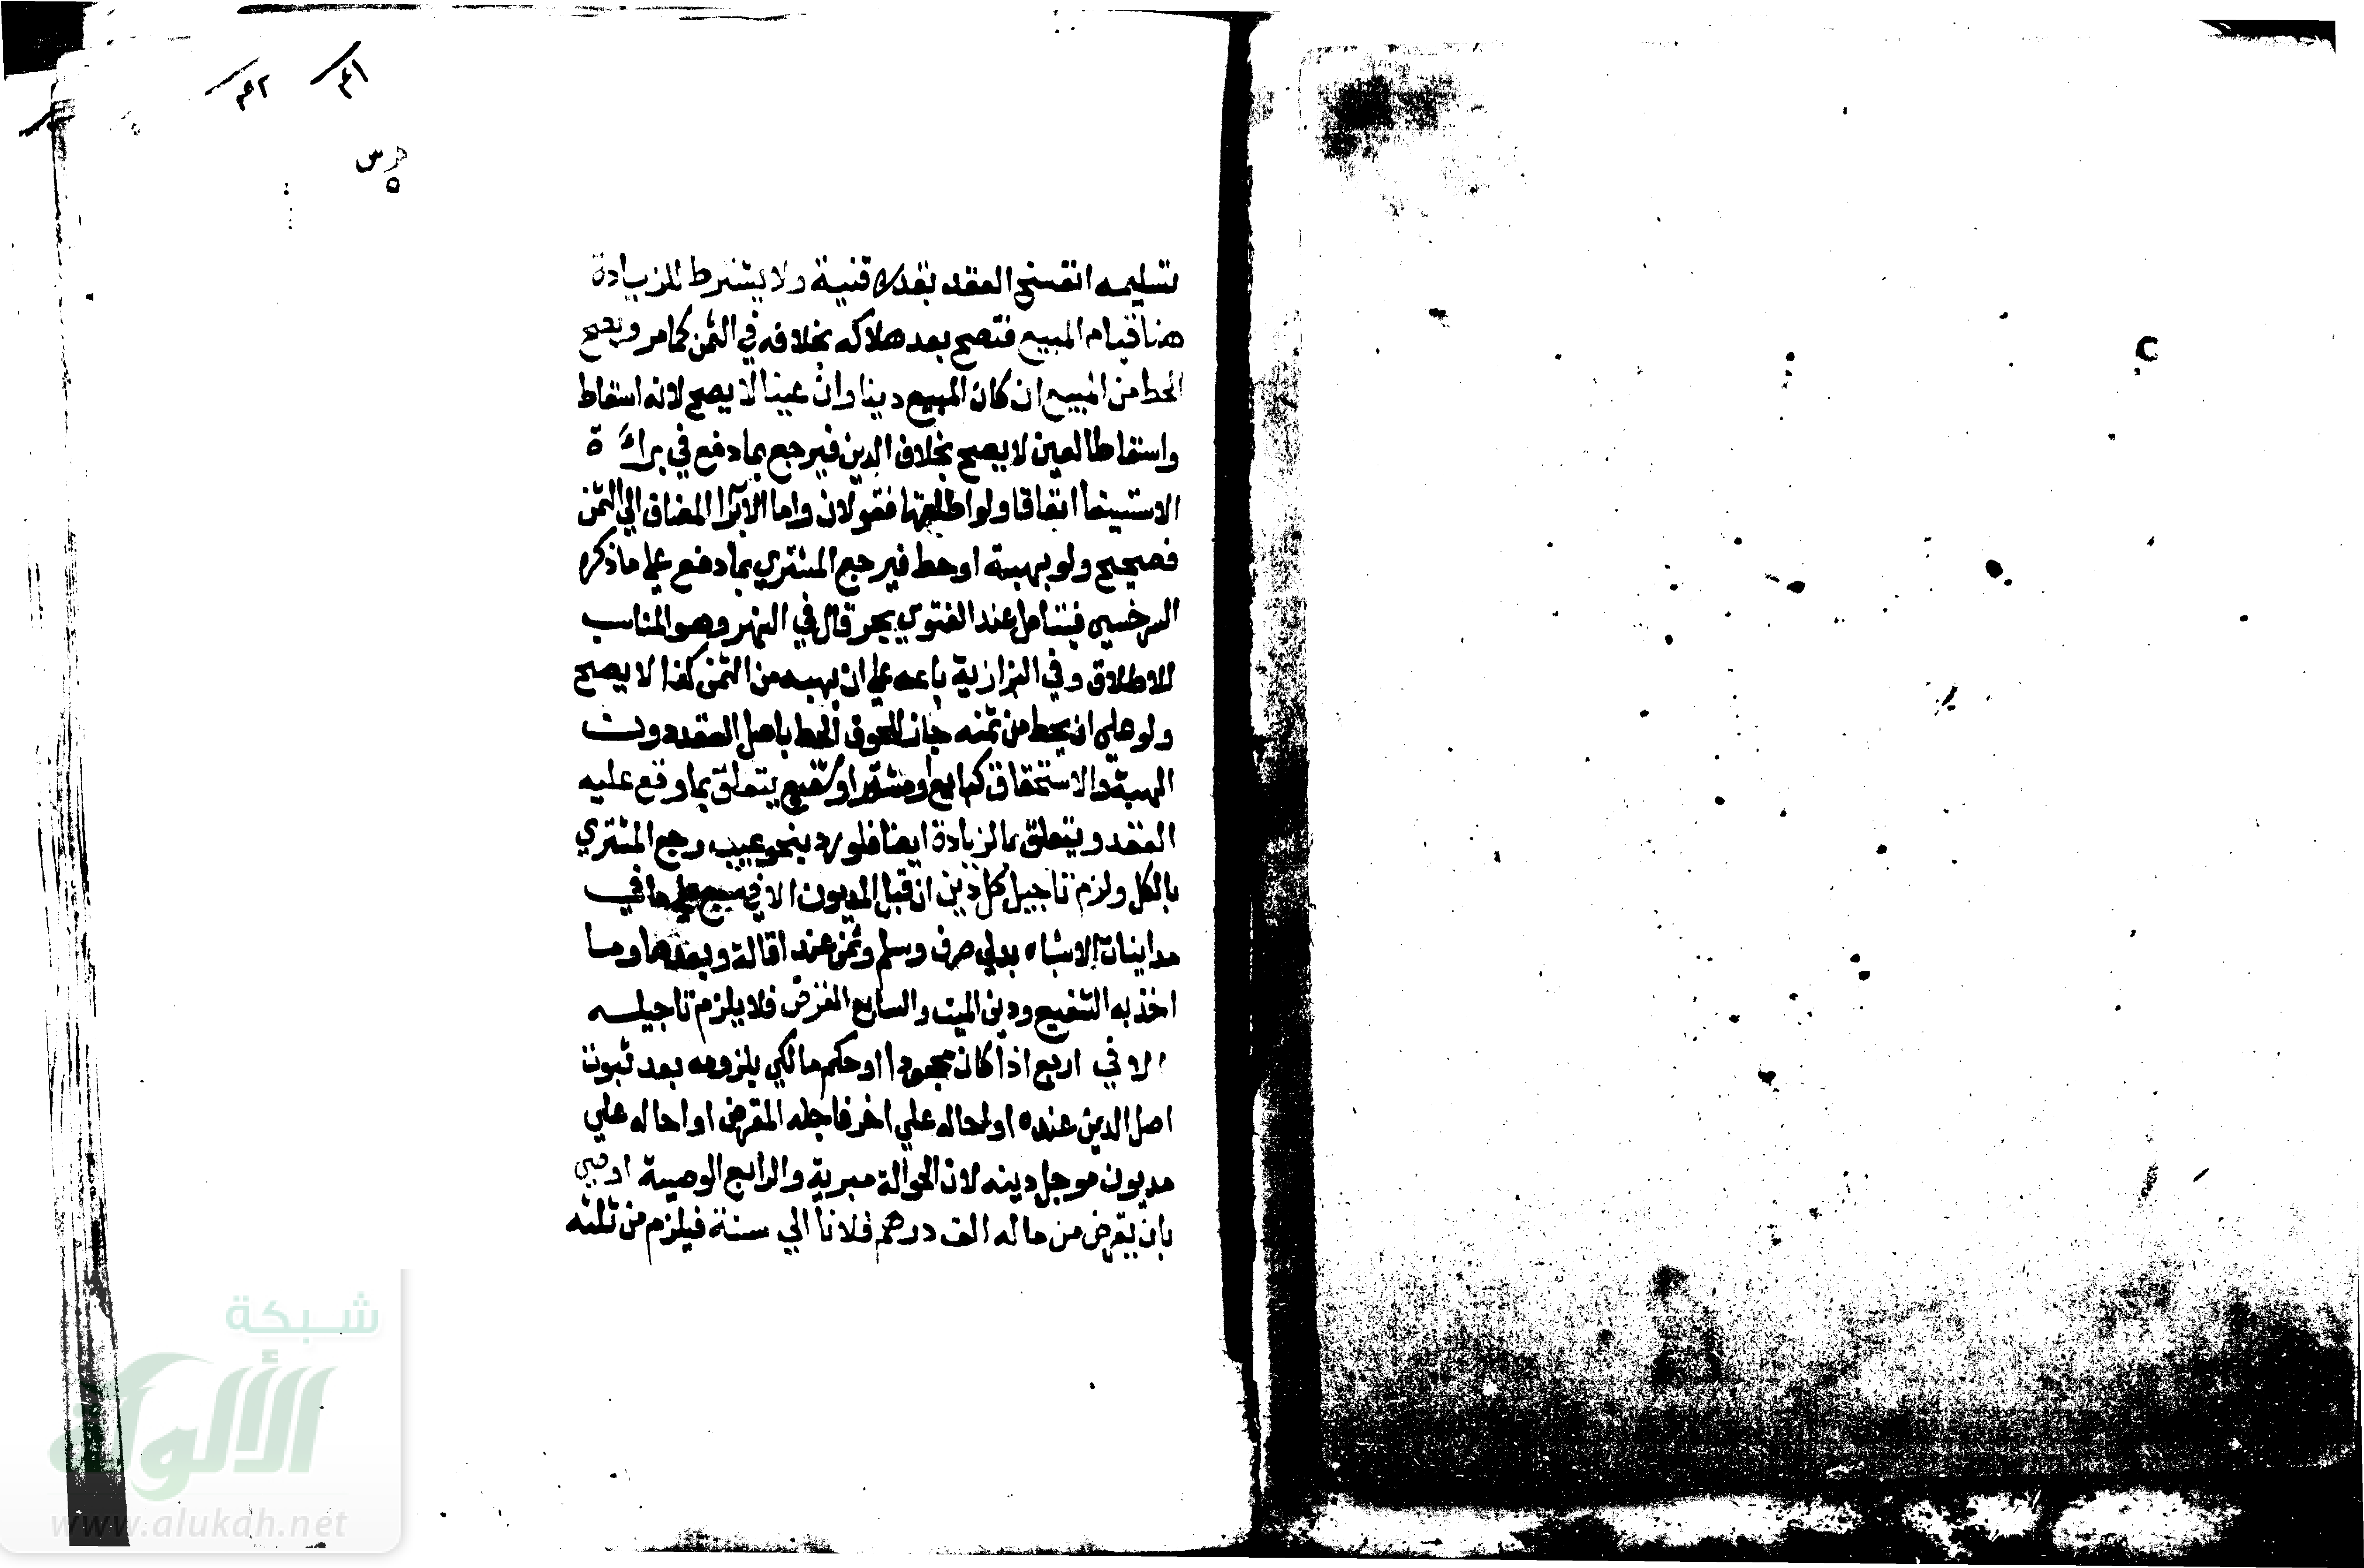 تسليمه انفسخ العقد بقدره قنية ولا يشترط للزيادة
هنا قيام المبيع فتصح بعد هلاكه بخلافه في الثمن كما مر ويصح
الحط من المبيع ان كان المبيع دينا وان عينا لا يصح لانه اسقاط
واسقاط العين لا يصح بخلاف الدين فيرجع بما دفع في براءة
الاستيفا اتفاقا ولو اطلقها فقولان واما الابرا المضاف الي الثمن
فصحيح ولو بهبة او حط فيرجع المشتري بما دفع علي ما ذكره
السرخسي فيتامل عند الفتوي بحر قال في النهر وهو المناسب
للاطلاق وفي البزازية باعه علي ان يهبه من الثمن كذا لا يصح
ولو علي ان يحط من ثمنه جاز للحوق الحط باصل العقد دون
الهبة والاستحقاق لبايع او مشتر او شفيع يتعلق بما وقع عليه
العقد ويتعلق بالزيادة ايضا فلو رد بنحو عيب رجع المشتري
بالكل ولزم تاجيل كل دين ان قبل المديون الا في سبع علي ما في
مداينات الاشباه بدلي صرف وسلم وثمن عند اقالة وبعدها وما
اخذ به الشفيع ودين الميت والسابع القرض فلا يلزم تاجيله
الا في اربع اذا كان مجحودا او حكم مالكي بلزومه بعد ثبوت
اصل الدين عنده او احاله علي اخر فاجله المقرض او احاله علي
مديون موجل دينه لان الحوالة مبرية والرابع الوصية اوصي
بان يقرض من ماله الف درهم فلانا الي سنة فيلزم من ثلثه
شبكة
الألوكة
www.alukah.net